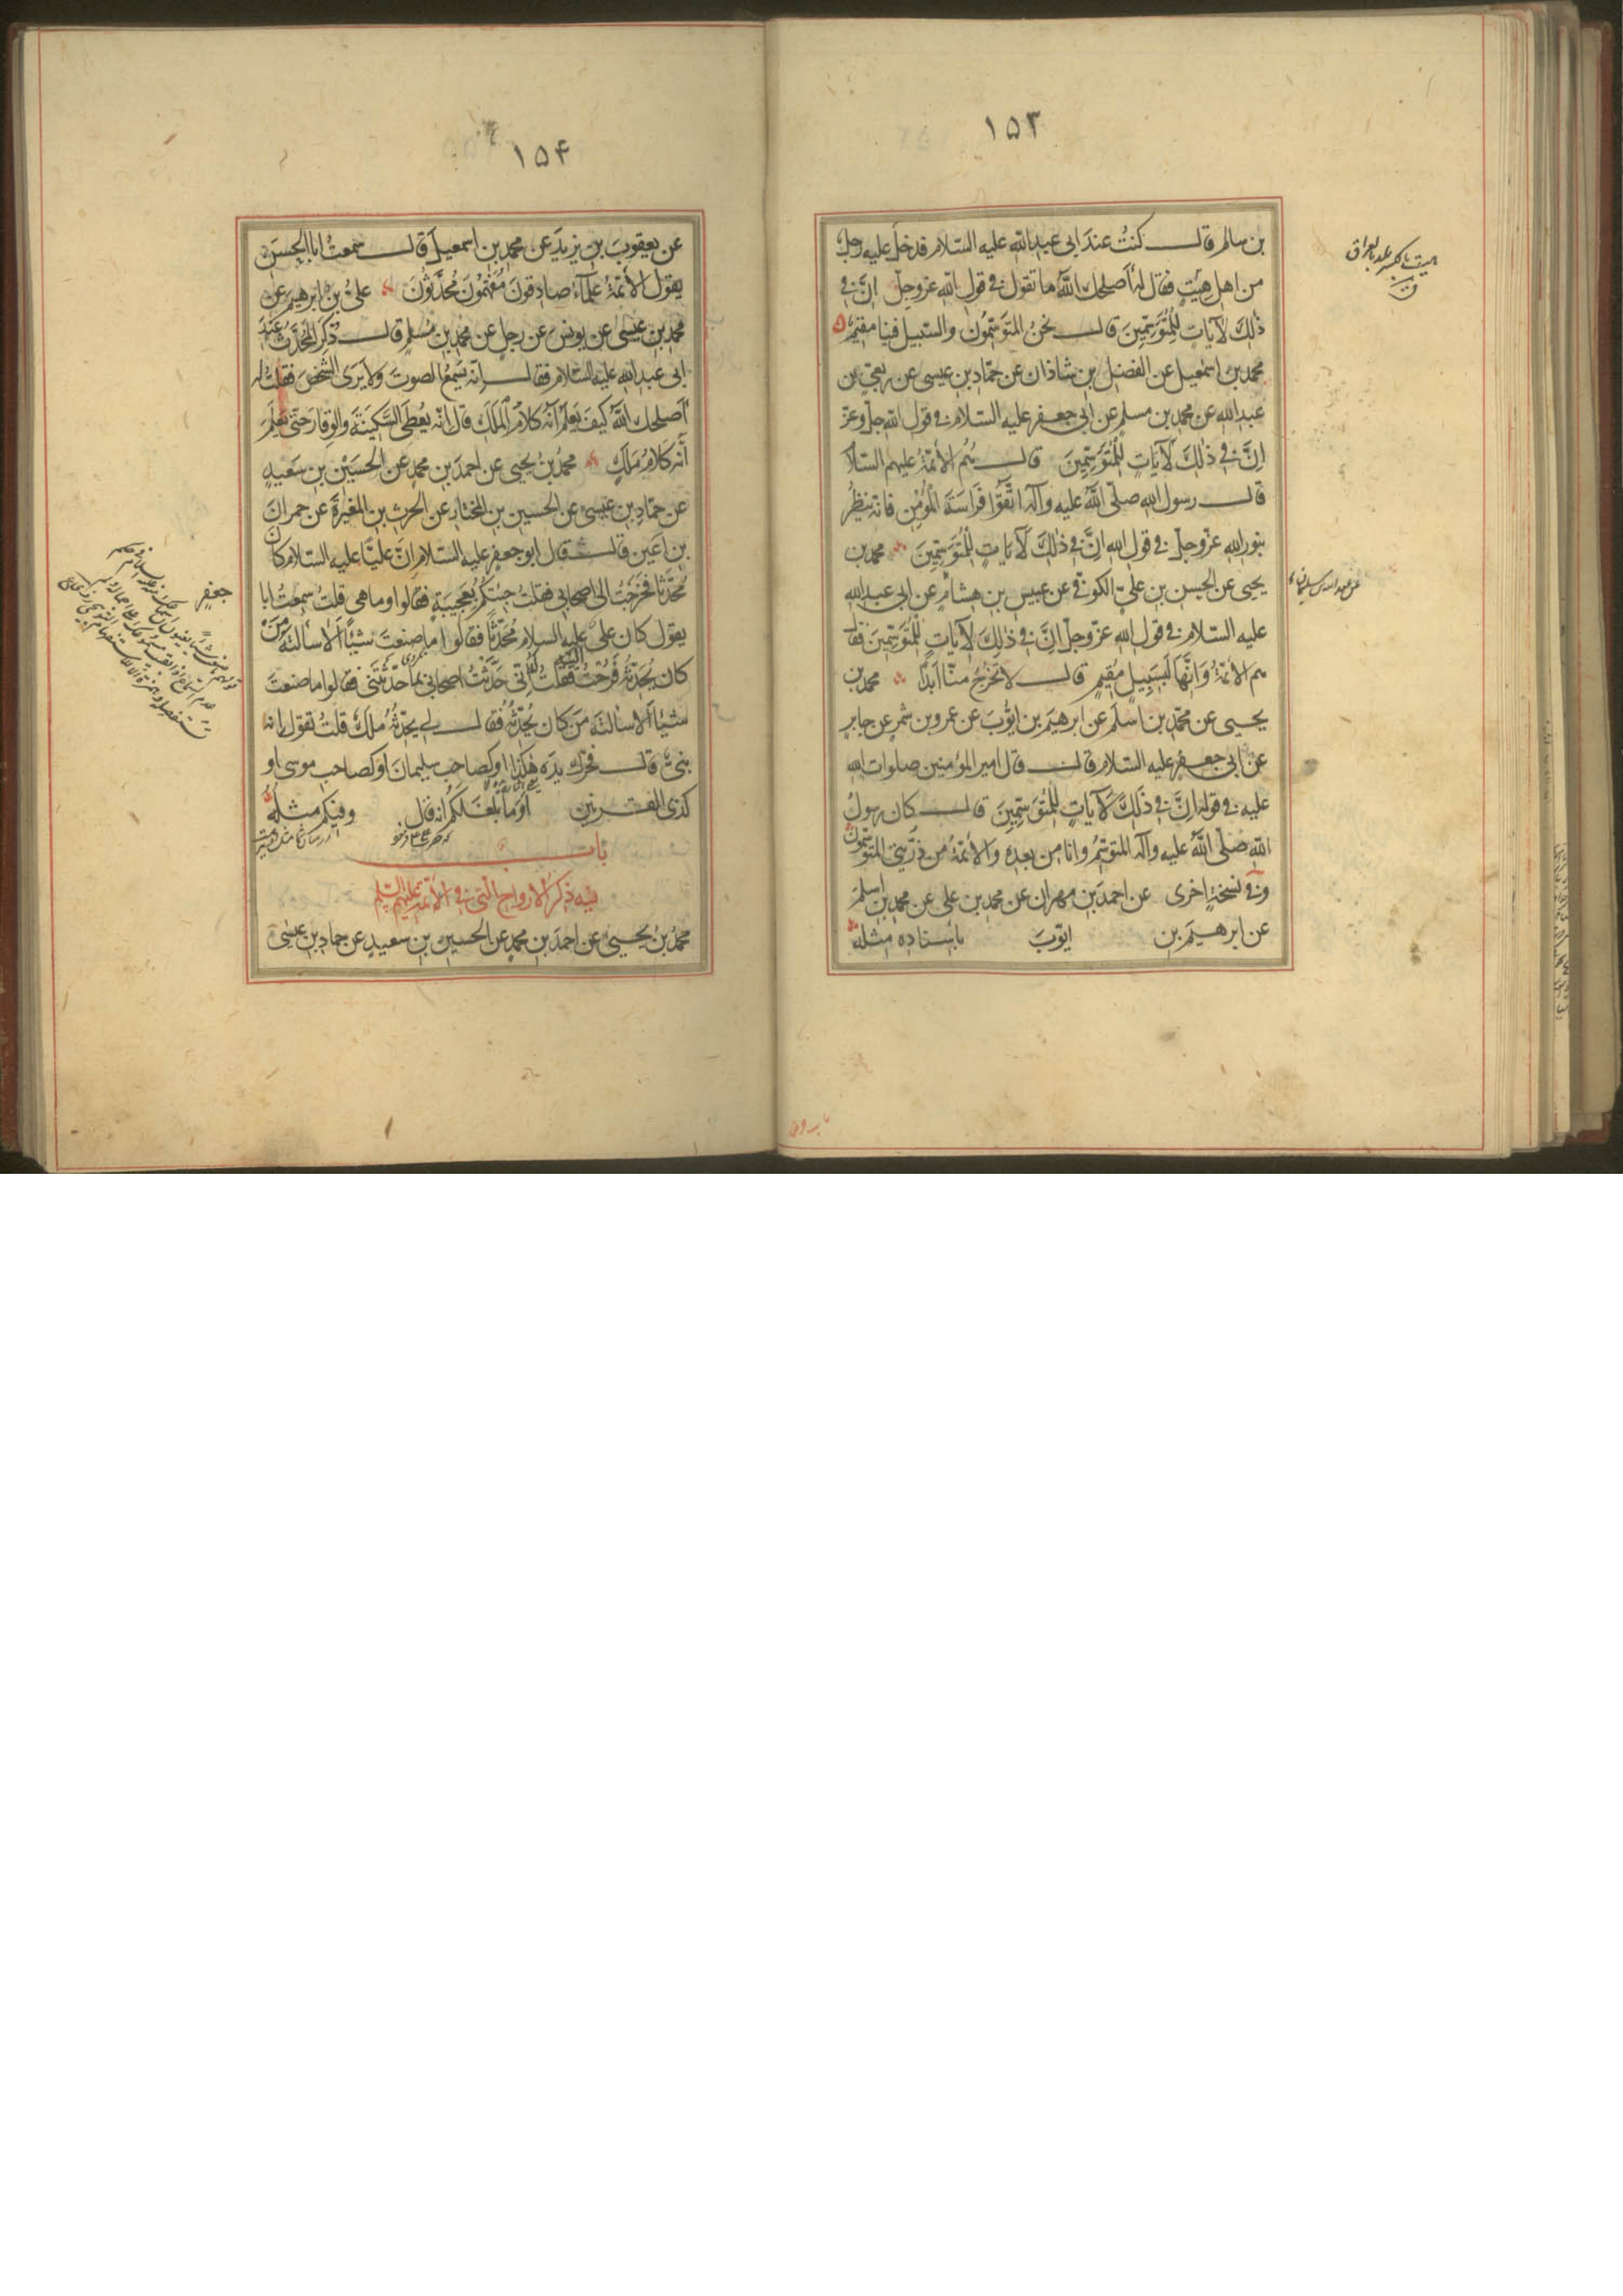 ١٥٣
بن سالم قال كنتُ عندَ ابى عبدالله عليه السّلام فدخلَ عليه رجلٌ
من اهل هِيْتٍ فقال لهُ اَصلحك اللّٰهُ ما تقول فى قول الله عزّوجلّ انّ فى
ذٰلِكَ لَآيَاتٍ لِلْمُتَوَسِّمِينَ قال نحنُ المُتَوَسِّمُون والسّبيل فينا مقيمٌ
محمد بن اسمٰعيل عن الفضل بن شاذان عن حمّاد بن عيسى عن ربعىّ بن
عبدالله عن محمد بن مسلم عن ابى جعفر عليه السّلام فى قول الله جلّ وعزّ
اِنَّ فى ذٰلِكَ لَآيَاتٍ لِلْمُتَوَسِّمِينَ قال هُم الأئمّةُ عليهم السّلام
قال رسول الله صلّى اللّٰهُ عليه وآله اتَّقُوا فَرَاسَةَ الْمُؤْمِنِ فانّه ينظرُ
بنور الله عزّوجلّ فى قول الله اِنَّ فى ذٰلِكَ لَآيَاتٍ لِلْمُتَوَسِّمِينَ محمد بن
يحيى عن الحسن بن علىّ الكوفىّ عن عبيس بن هشام عن ابى عبدالله
عليه السّلام فى قول الله عزّوجلّ اِنَّ فى ذٰلِكَ لَآيَاتٍ لِلْمُتَوَسِّمِينَ فقال
هم الأئمّةُ وَاِنَّهَا لَبِسَبِيلٍ مُقِيمٍ قال لا تَخْرُجُ منّا اَبَدًا محمد بن
يحيى عن محمّد بن اسلَمَ عن ابرهيمَ بن ايّوبَ عن عمرو بن شمرٍ عن جابرٍ
عن ابى جعفر عليه السّلام قال قال امير المؤمنين صلوات الله
عليه فى قوله اِنَّ فى ذٰلِكَ لَآيَاتٍ لِلْمُتَوَسِّمِينَ قال كان رسولُ
الله صلّى اللّٰهُ عليه وآله المتوسِّمُ وانا من بعده والأئمّةُ من ذرّيتى المتوسِّمُونَ
وفى نسخةٍ اخرى عن احمدَ بن مهران عن محمد بن على عن محمد بن اسلمَ
عن ابرهيمَ بن ايّوبَ باسناده مثلَه
هيت بالكسر بلد بالعراق
ق
١٥۴
عن يعقوبَ بن يزيدَ عن محمد بن اسمٰعيلَ قال سمعتُ ابا الحسنِ
يقول الأئمّةُ عُلماءُ صادِقونَ مُفَهَّمُونَ مُحَدَّثُونَ علىُّ بن ابرهيمَ عن
محمد بن عيسى عن يونس عن رجلٍ عن محمد بن مُسلمٍ قال ذُكِرَ المُحَدَّثُ عندَ
ابى عبدالله عليه السّلام فقال انّه يَسْمَعُ الصوتَ ولا يَرى الشخصَ فقلتُ له
اَصلحك اللّٰهُ كيفَ يَعلَمُ اَنّه كلامُ المَلَك قال انّه يُعْطَى السَّكِينَةَ والوِقارَ حتى يَعْلَمَ
اَنّه كلامُ مَلَكٍ محمدُ بنُ يحيى عن احمدَ بن محمدٍ عن الحسَيْن بن سَعيدٍ
عن حمّادِ بن عيسى عن الحسين بن المختار عن الحرث بن المغيرةَ عن حمرانَ
بن اعينَ قال قال ابو جعفرٍ عليه السّلام اِنّ عليًّا عليه السّلام كان
مُحَدَّثًا فخرجتُ الى اصحابى فقلتُ جئتكم بعجيبةٍ فقالوا وما هى قلتُ سمعتُ ابا
جعفرٍ
يقول كان علىٌّ عليه السلام مُحَدَّثًا فقالوا ما صنعتَ شيئًا اَلا سألتَه مَنْ
كان يُحَدِّثُه فرجعتُ اليه فقلتُ اِنّى حَدَّثتُ اصحابى بما حدّثتنى فقالوا ما صنعتَ
شيئًا اَلا سألتَه مَن كان يُحدِّثُه فقال لى يحدّثُه مَلَكٌ قلتُ تقول انّه
نبىٌّ قال فحرّك يدَه هٰكذا او كصاحب سليمانَ او كصاحب موسى او
كذى القرنين اَوَما بَلَغَكم انّه قال وفيكم مثلُه
باب
فيه ذكر الارواح التى فى الأئمّة عليهم السّلم
محمدُ بنُ يحيى عن احمدَ بن محمدٍ عن الحسين بن سعيدٍ عن حماد بن عيسى